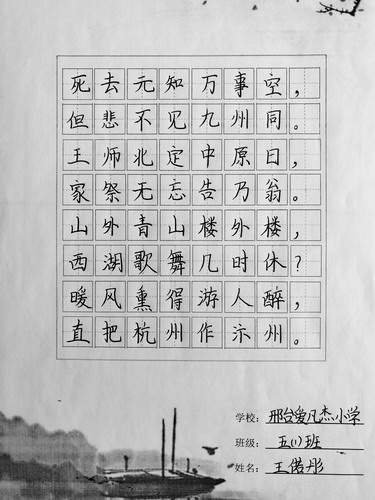 死去元知万事空，
但悲不见九州同。
王师北定中原日，
家祭无忘告乃翁。
山外青山楼外楼，
西湖歌舞几时休？
暖风熏得游人醉，
直把杭州作汴州。
学校：邢台爱凡杰小学
班级：五(1)班
姓名：王偌彤